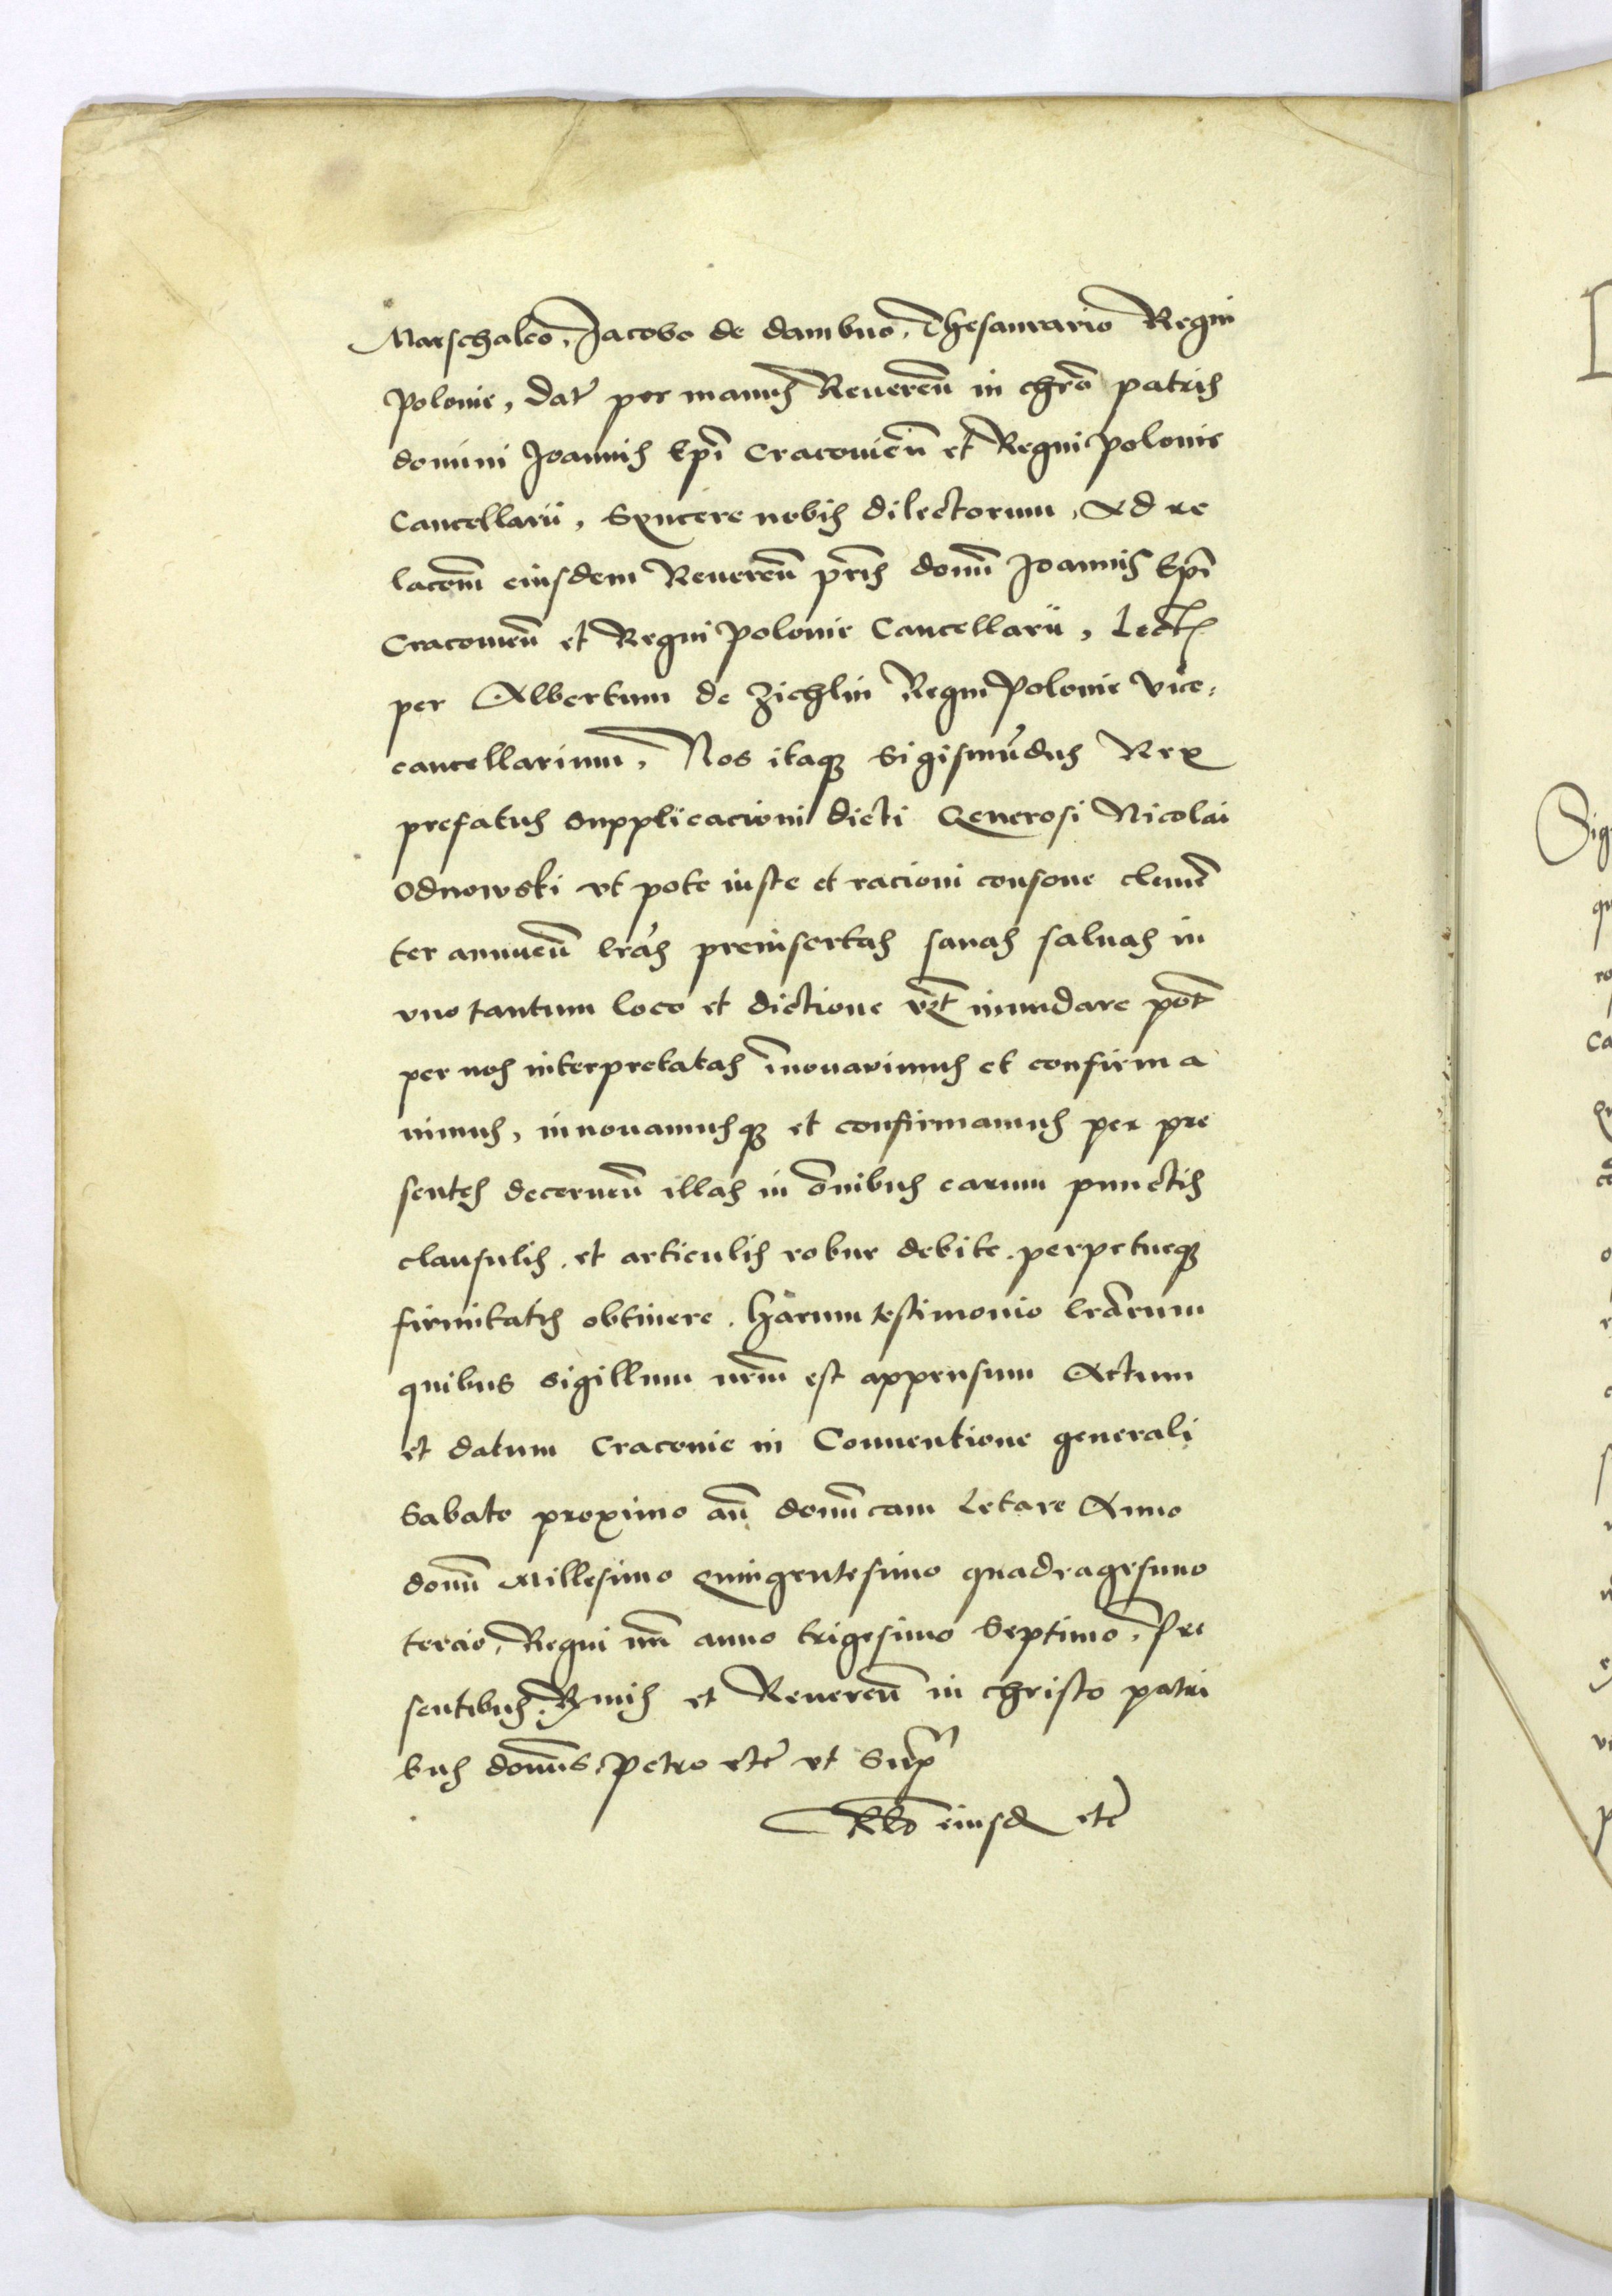 Marschalco, Jacobo de dambno, Thesaurario Regni
Polonie, dat per manus Reueren in chro patris
domini Joannis Epi Cracovien et Regni Polonie
Cancellarii, Syncere nobis dilectorum, Ad re
lacoem eiusdem Reueren pris domi Joannis Epi
Cracouien et Regni Polonie Cancellarii, Lect
per Albertum de Zichlin Regni Polonie Vice,
cancellarium, Nos itaq Sigismudus Rex
prefatus supplicacioni dicti Generosi Nicolai
Odnowski vt pote iuste et racioni consone clemē
ter annuen lras preinsertas sanas saluas in
vno tantum loco et dictione vzt inundare pot
per nos interpretatas inouauimus et confirma
uimus, innouamusq et confirmamus per pre
sentes decernen illas in oīnibus earum punctis
clausulis, et articulis robur debite perpetueq
firmitatis obtinere, harum testimonio lrarum
quibus sigillum nrm est appensum Actum
et datum Cracouie in Conuentione generali
Sabato proximo an domicam Letare Anno
domi Millesimo Quingentesimo quadragesimo
tercio, Regni nri anno trigesimo Septimo, Pre
sentibus, Rmis et Reueren in christo patri
bus domis, Petro etc vt Supra
Rlo eiusd etc